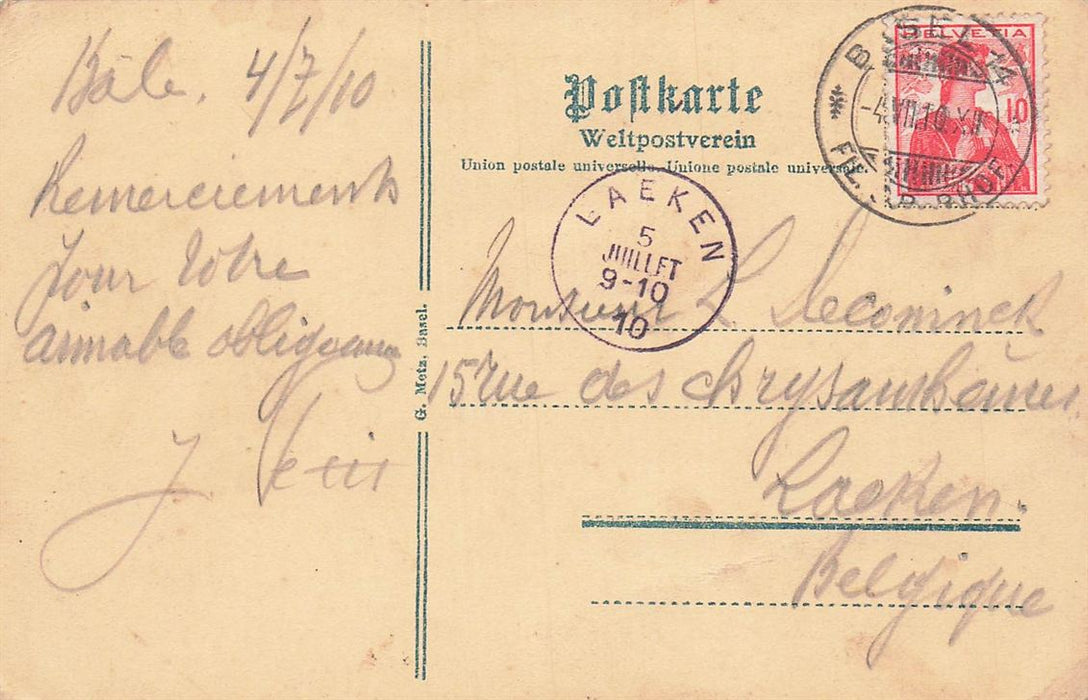 Bâle, 4/7/10
Remerciements
pour votre
aimable obligeance
J.
G. Metz, Basel.
Postkarte
Weltpostverein
Union postale universelle. Unione postale universale.
HELVETIA
10
BASEL 14
-4.VII.10.XII
LAEKEN
5
JUILLET
9-10
10
Monsieur L Deconinck
15 rue des Chrysanthèmes
Laeken.
Belgique